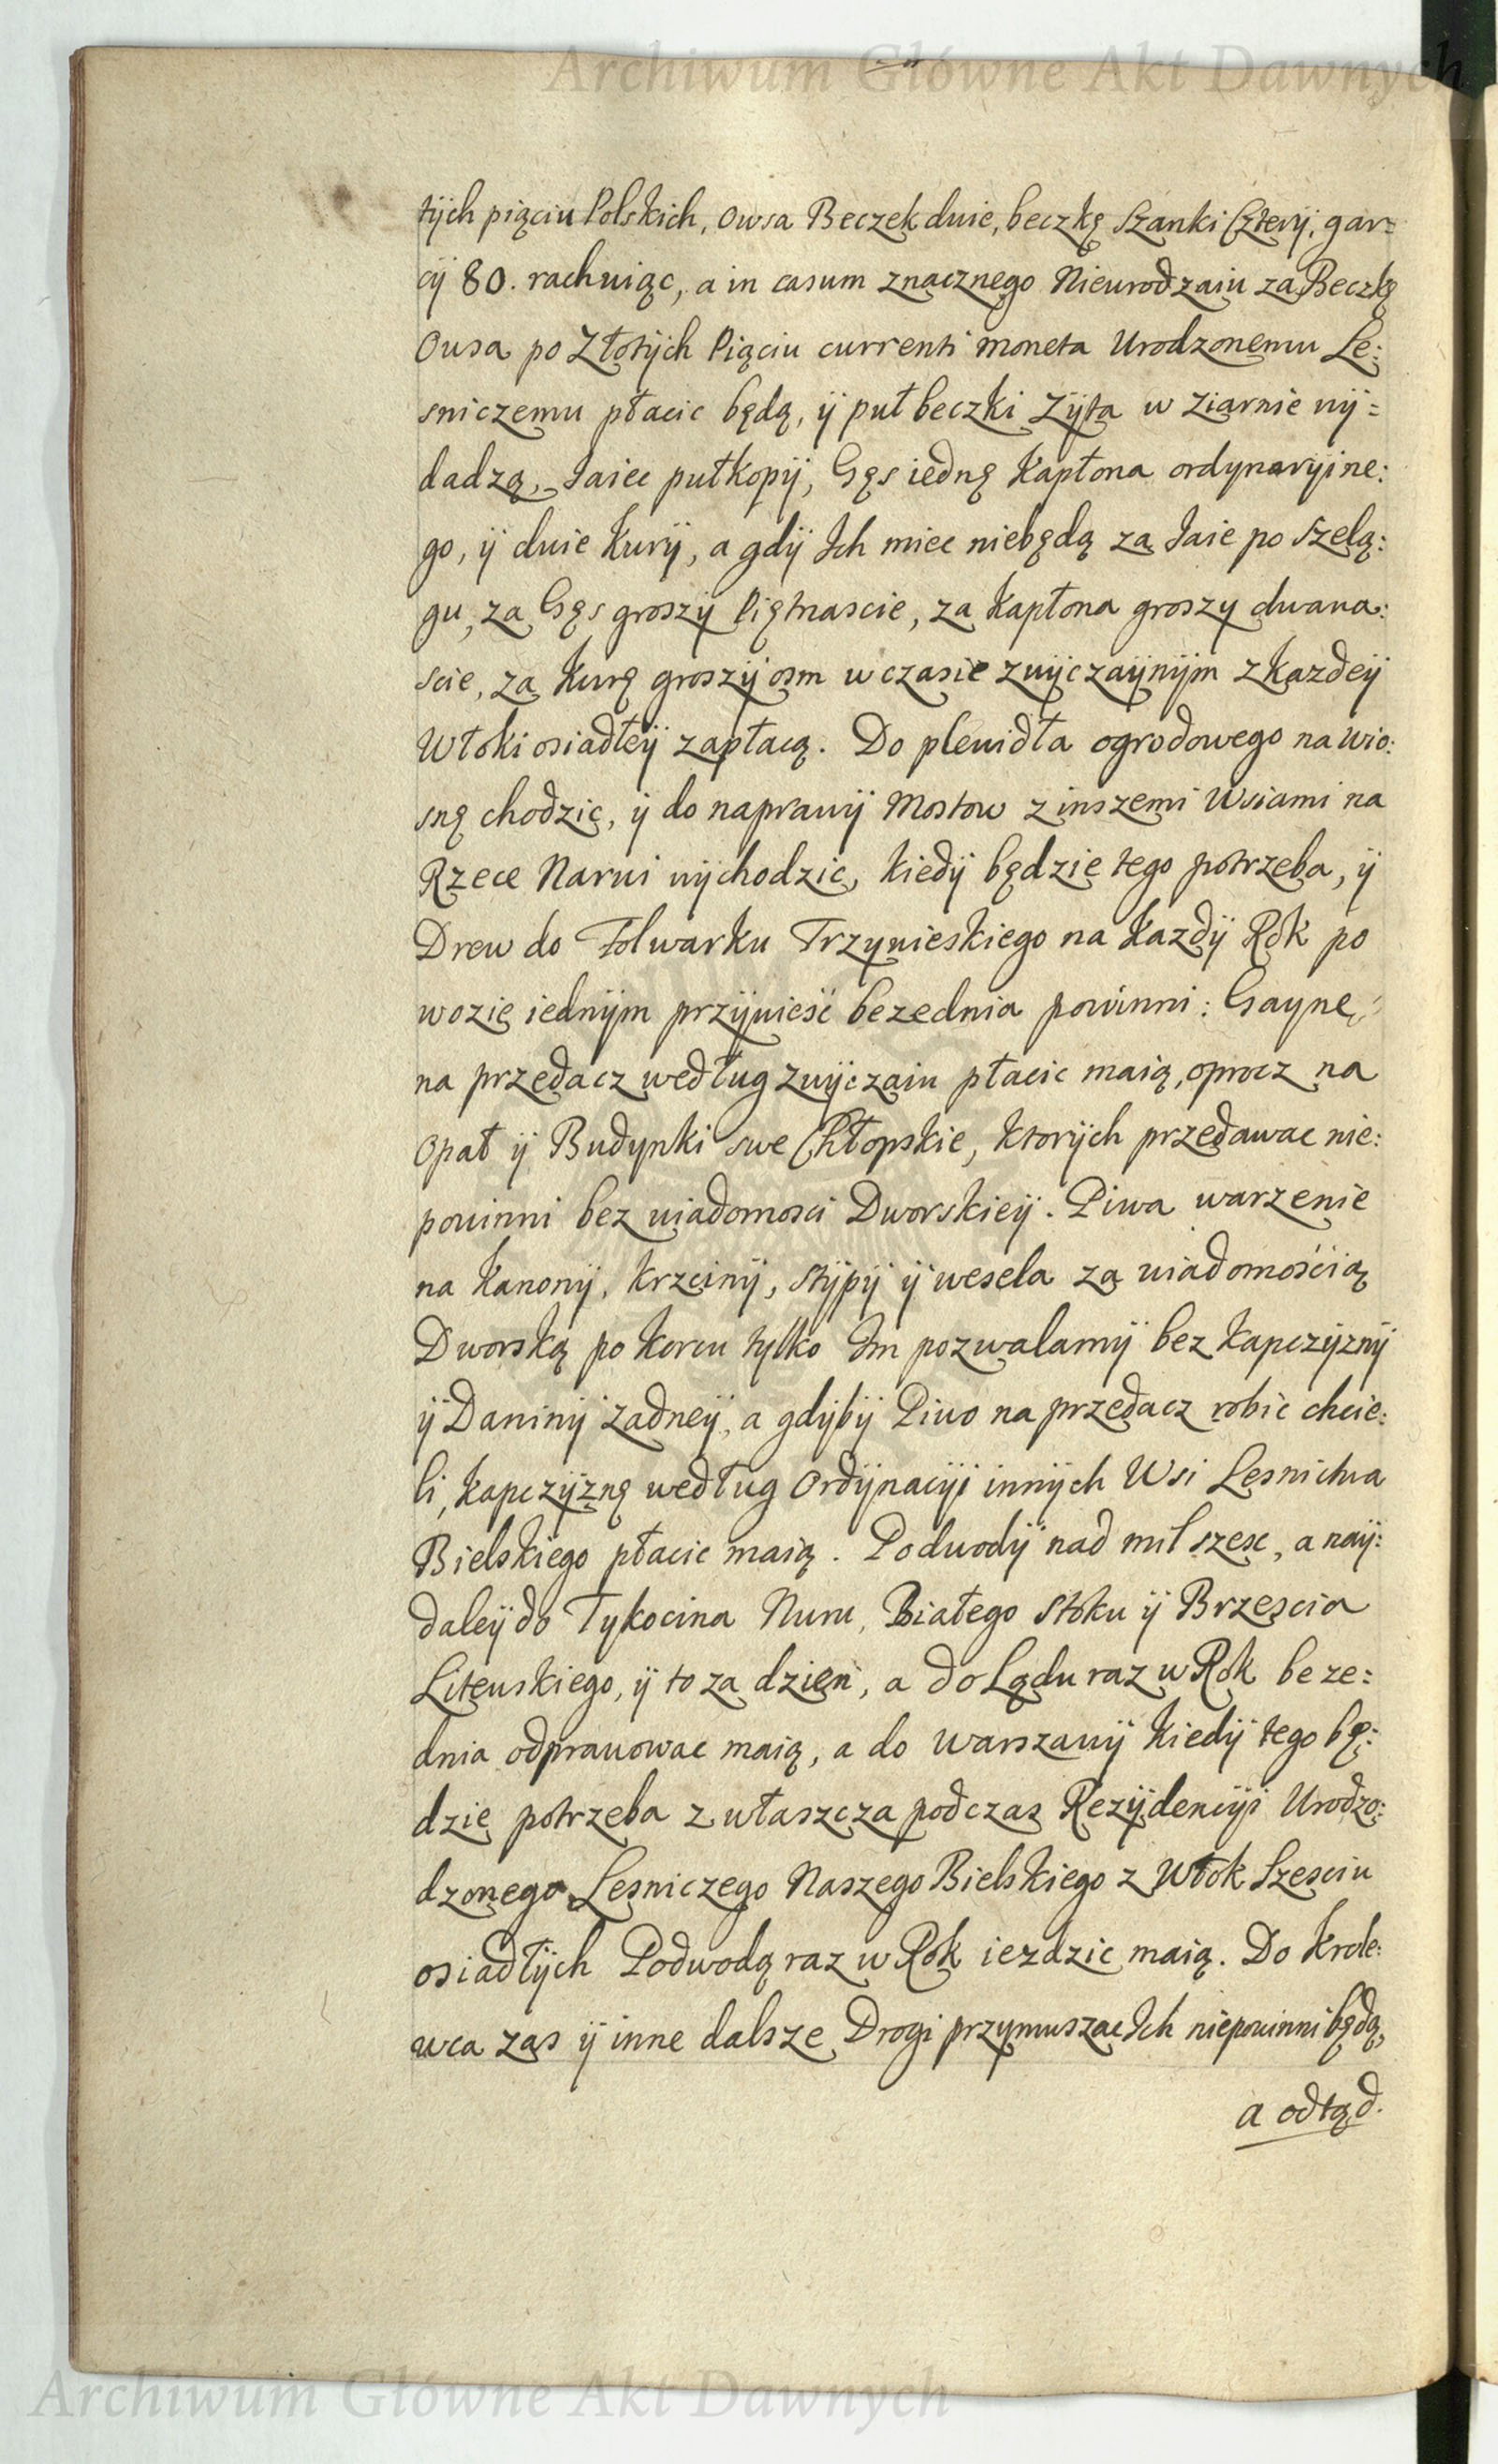 Archiwum Główne Akt Dawnych
tÿch piąciu Polskich, Owsa Beczek dwie, beczkę Szanki Czterÿ, gar=
cÿ 80. rachuiąc, a in casum znacznego Nieurodzaiu za Beczkę
Owsa po Złotÿch Piąciu currenti moneta Urodzonemu Le:
sniczemu płacic będą, ÿ puł beczki Zÿta w ziarnie wÿ=
dadzą, Iaiec pułkopÿ, Gęs iednę Kapłona ordynaryine:
go, ÿ dwie Kurÿ, a gdÿ Ich miec niebędą za Iaie po szelą:
gu, za Gęs groszÿ Piętnascie, za Kapłona groszy dwana:
scie, za Kurę groszÿ osm w czasie zwÿczaÿnÿm z kazdeÿ
Włoki osiadłeÿ zapłacą. Do plewidła ogrodowego na wio:
snę chodzic, ÿ do naprawÿ Mostow z inszemi Wsiami na
Rzece Narwi wÿchodzic, kiedÿ będzie tego potrzeba, ÿ
Drew do Folwarku Trzywieskiego na Kazdÿ Rok po
wozie iednÿm przÿwieść bezednia powinni: Gayne
na przedacz według zwÿczaiu płacic maią, oprocz na
Opał ÿ Budynki swe Chłopskie, ktorÿch przedawac nie:
powinni bez wiadomosci Dworskieÿ. Piwa warzenie
na Kanonÿ, Krzcinÿ, Stÿpÿ ÿ wesela za wiadomością
Dworską po korcu tylko Im pozwalamÿ bez kapczÿznÿ
ÿ Daninÿ żadneÿ, a gdÿbÿ Piwo na przedacz robic chcie:
li, kapczÿznę według Ordÿnacÿi innÿch Wsi Lesnictwa
Bielskiego płacic maią. Podwodÿ nad mil szesc, a naÿ:
daleÿ do Tykocina Nuru, Białego Stoku ÿ Brzescia
Litewskiego, ÿ to za dzień, a do Lądu raz w Rok beze:
dnia odprawowac maią, a do Warszawÿ kiedÿ tego bę:
dzie potrzeba zwłaszcza podczas Rezÿdencÿi Urodzo:
dzonego Lesniczego Naszego Bielskiego z Włok Szesciu
osiadłÿch Podwodą raz w Rok iezdzic maią. Do Krole:
wca zas ÿ inne dalsze Drogi przymuszac Ich niepowinni będą,
a odtąd.
Archiwum Główne Akt Dawnych